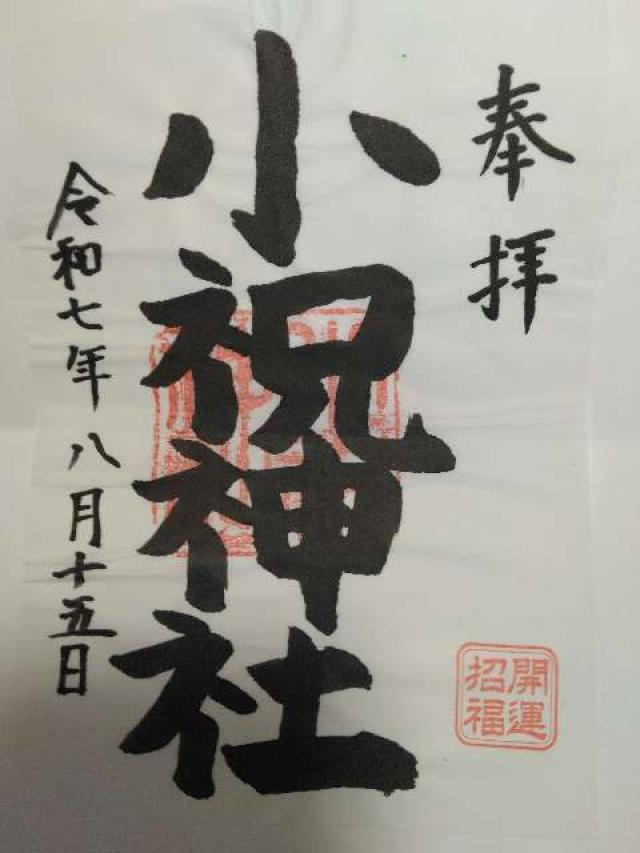 奉拝
小祝神社
令和七年八月十五日
開運
招福